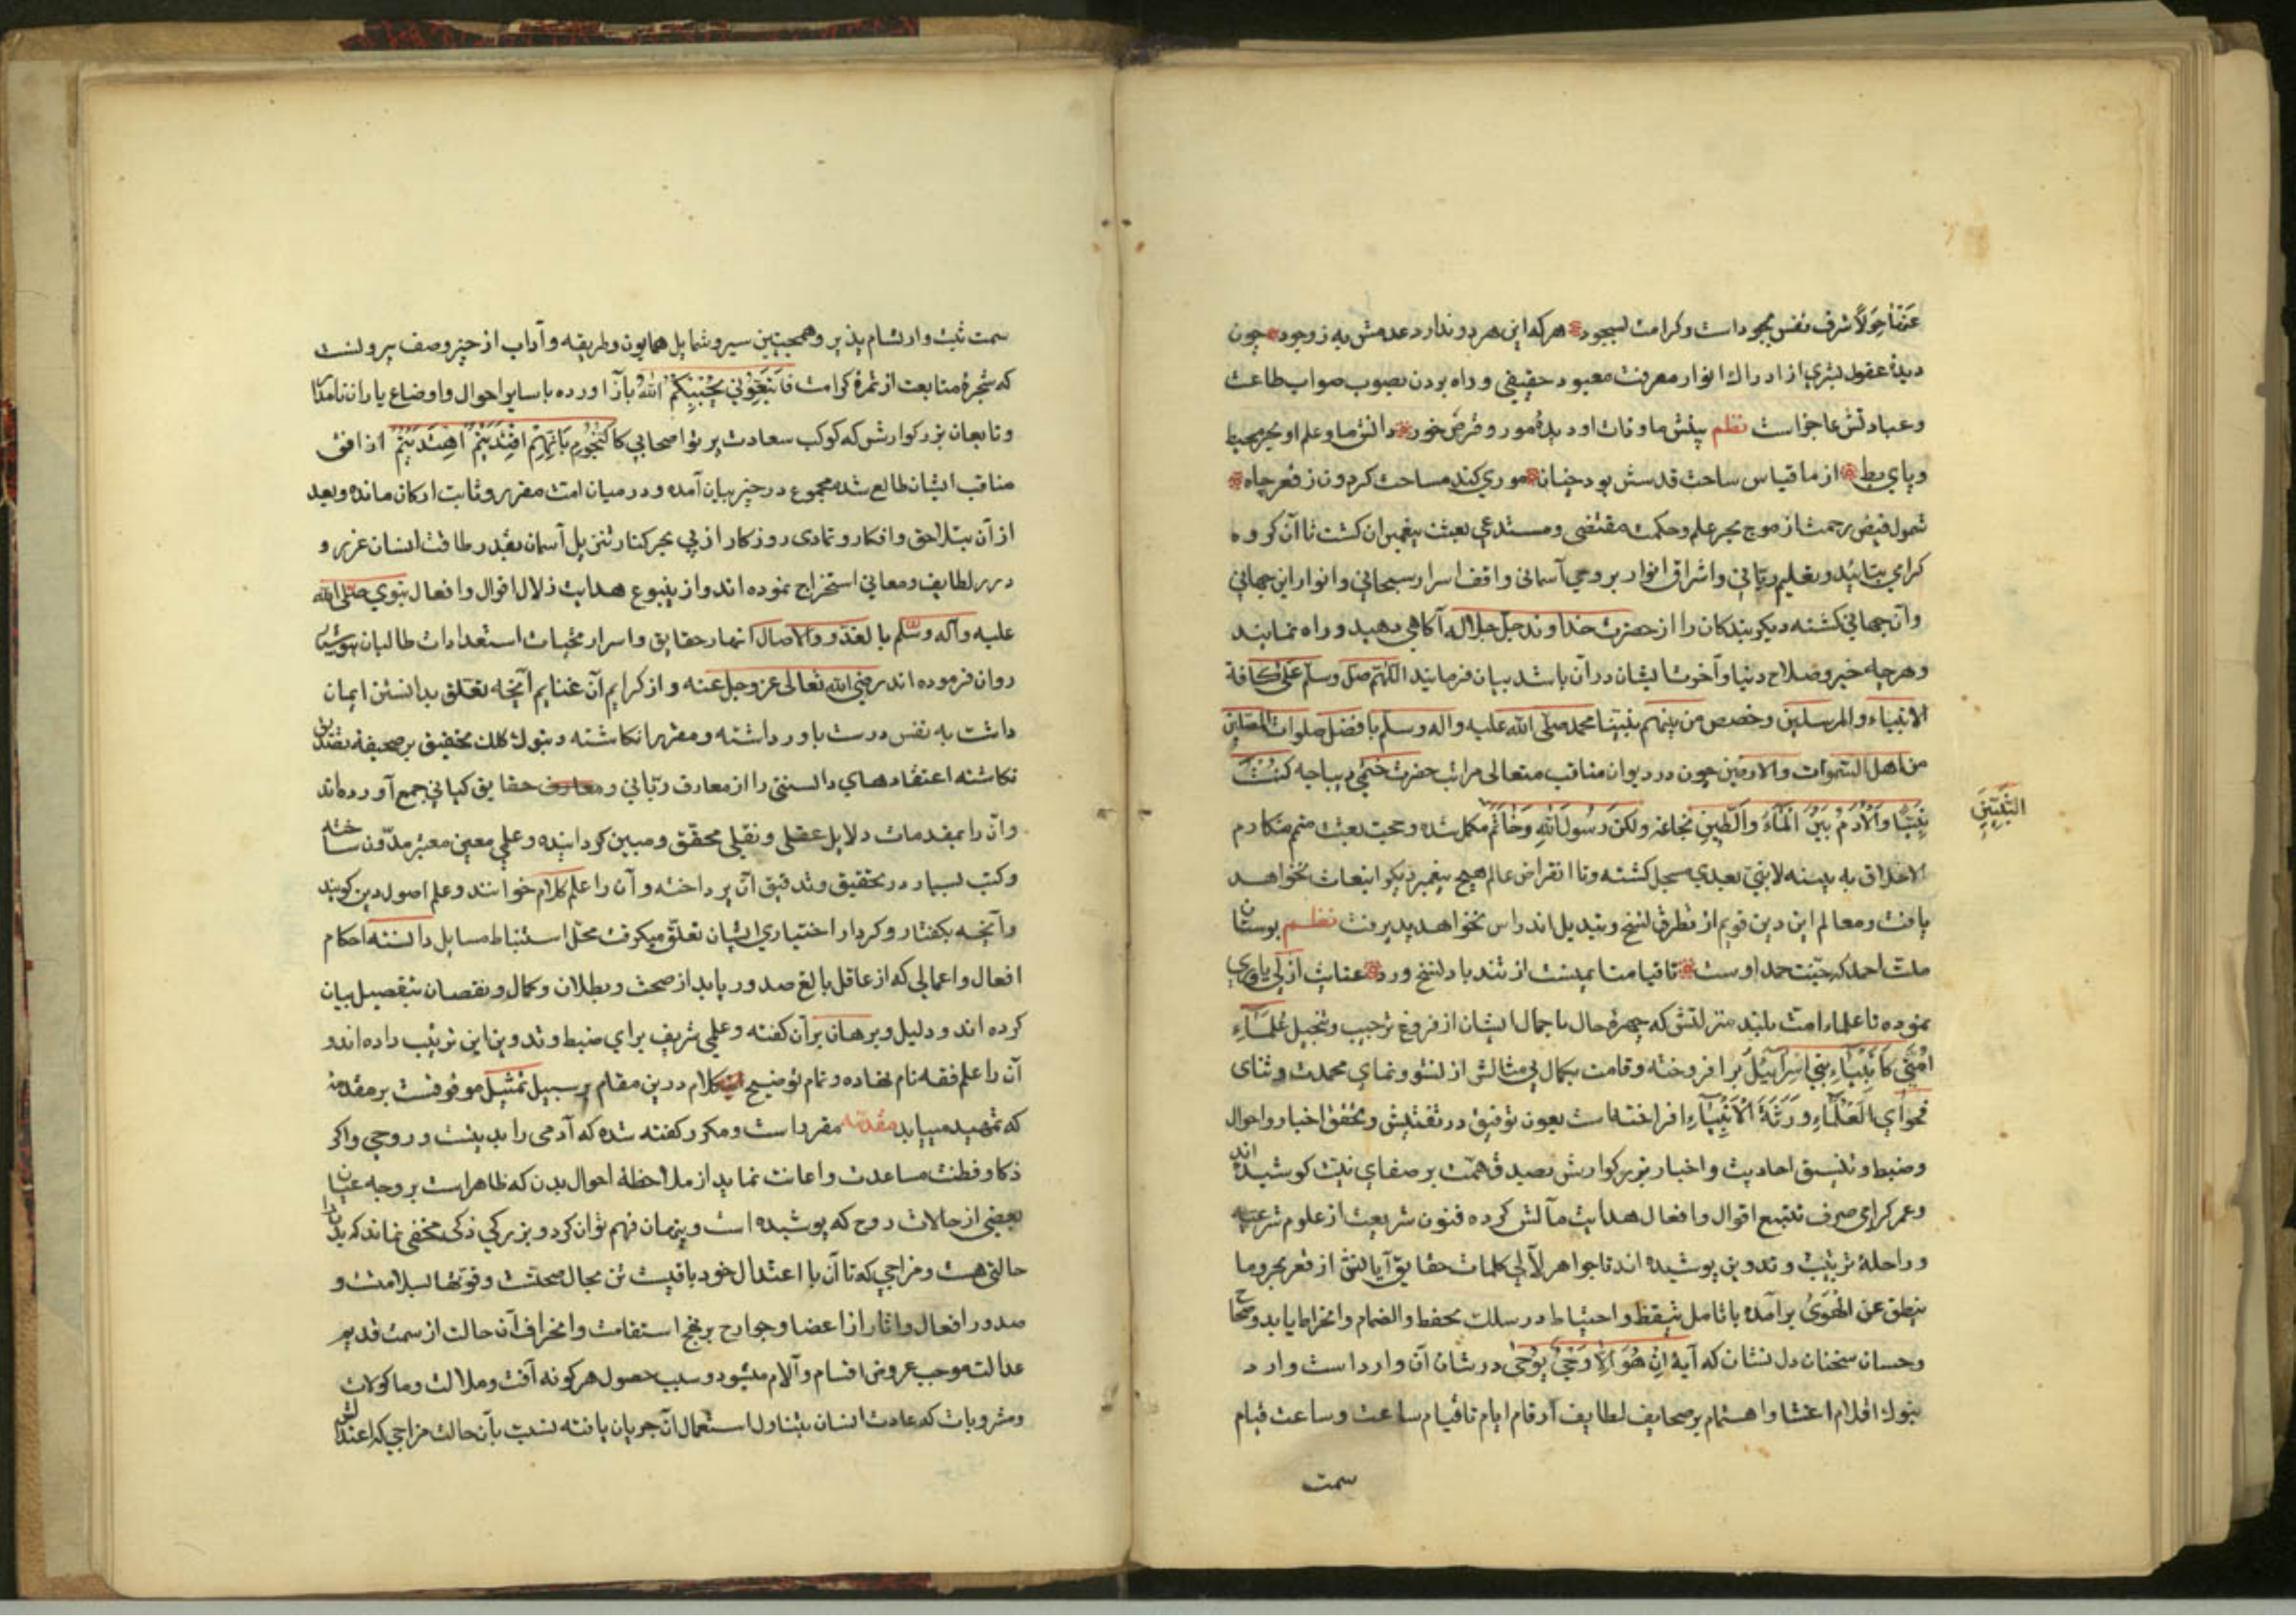 عنها حولا شرف نفس بجود است و کرامت بسجود هر که این هر دو ندارد عدمش به ز وجود چون
دیدهٔ عقول بشری از ادراک انوار معرفت معبود حقیقی و راه بردن بصوب صواب طاعت
و عبادتش عاجز است نظم بینش ما و ذات او دیدهٔ مور و قرص خور دانش ما و علم او بحر محیط
و پای بط از ما قیاس ساحت قدسش بود چنان موری کند مساحت گردون ز قعر چاه
شمول فیض رحمت از موج بحر علم و حکمت مقتضی و مستدعی بعثت پیغمبران کشت تا آن کروه
کرامی بتایید و تعلیم ربانی و اشراق انوار بر وحی آسمانی واقف اسرار سبحانی و انوار این جهانی
و آن جهانی کشته دیکر بندکان را از حضرت خداوند جل جلاله آکاهی دهید و راه نمایند
و هر چله خیر و صلاح دنیا و آخرت ایشان در آن باشد بیان فرمایند اللهم صل وسلم علی کافة
الانبیاء والمرسلین وخصص من بینهم نبینا محمد صلی الله علیه واله وسلم بافضل صلوات المصلین
من اهل السموات والارضین چون در دیوان مناقب متعالی مراتب حضرت ختمی دیباجه کنت
نبیا والادم بین الماء والطین بخاتمه ولکن رسول الله وخاتم مکمل شده و حجت بعثت متمم مکارم
النبیین
الاخلاق به بینه لا نبی بعدی مسجل کشته و تا انقراض عالم هیچ پیغمبر دیکر انبعاث نخواهد
یافت و معالم این دین قویم از تطرق نسخ و تبدیل اندراس نخواهد پدیرفت نظم بوستان
ملت احمد که جنت حمد اوست تا قیامت ایمنست از تند باد نسخ و رد عنایت ازلی یاوری
نموده تا علماء امت بلند منزلتش که چهرهٔ حال با جمال ایشان از فروغ ترحیب و تبجیل علماء
امتی کانبیاء بنی اسرائیل بر افروخته و قامت بکمال بی مثالش از نشو و نمای محمدت و ثنای
فحوای العلماء ورثة الانبیاء افراخته است بعون توفیق در تفتیش و تحقق اخبار و احوال
و ضبط و تنسیق احادیث و اخبار بزرکوارش بصدق همت بر صفای نیت کوشیده اند
و عمر کرامی صرف تتبع اقوال و افعال هدایت مآلش کرده فنون شریعت از علوم شرعیه
و راحلهٔ ترتیب و تدوین پوشیده اند تا جواهر لآلی کلمات حقایق آیاتش از قعر بحر وما
ینطق عن الهوی برآمده با تامل تیقظ و احتیاط در سلک تحفظ و انضمام و انخراط یابد و صحاح
و حسان سخنان دل نشان که آیهٔ ان هو الا وحی یوحی در شان آن وارد است وارد
بنوک اقلام اعتنا و اهتمام بر صحایف لطایف ارقام ایام تا قیام ساعت و ساعت قیام
سمت
سمت ثبت و ارتسام پذیر و همچنین سیر و شمایل همایون و طریقه و آداب از حیز وصف بیرونست
که شجرهٔ متابعت از ثمرهٔ کرامت فاتبعونی یحببکم الله بار آورده با سایر احوال و اوضاع یاران نامدار
و تابعان بزرکوارش که کوکب سعادت پرتو اصحابی کالنجوم بایهم اقتدیتم اهتدیتم از افق
مناقب ایشان طالع شده مجموع در حیز بیان آمده و در میان امت مقرر و ثابت ارکان مانده و بعد
از آن بتلاحق وافکار و تمادی روزکار از پی بحر کنار تنزیل آسمان بقدر طاقت انسان غرر و
درر لطایف و معانی استخراج نموده اند و از ینبوع هدایت زلال اقوال و افعال نبوی صلی الله
علیه وآله وسلم بالغدو والاصال انهار حقایق و اسرار مخبات استعدادات طالبان
روان فرموده اند رضی الله تعالی عز وجل عنه و از کرایم آن غنایم آنچه تعلق بدانستن ایمان
داشت به نفس درست باور داشته و مقرر انکاشته و بنوک کلک تحقیق بر صحیفه تصدیق
نکاشته اعتقادهای دانستنی را از معارف ربانی و معارف حقایق کیانی جمع آورده اند
و آن را بمقدمات دلایل عقلی و نقلی محقق و مبین کردانیده و علمی معین معتبر مدون ساخته
و کتب بسیار در تحقیق و تدقیق آن پرداخته و آن را علم کلام خوانند و علم اصول دین کویند
و آنچه بکفتار و کردار اختیاری ایشان تعلق میکرفت محل استنباط مسایل دانسته احکام
افعال و اعمالی که از عاقل بالغ صدور یابد از صحت و بطلان و کمال و نقصان بتفصیل بیان
کرده اند و دلیل و برهان بر آن کفته و علمی شریف برای ضبط و تدوین این ترتیب داده اند و
آن را علم فقه نام نهاده و تمام توضیح این کلام درین مقام بر سبیل تمثیل موقوفست بر مقدمه
که تمهید مییابد مقدمه مقرر است و مکرر کفته شده که آدمی را بدینست و روحی واکر
ذکا و فطنت مساعدت و اعانت نماید از ملاحظهٔ احوال بدن که ظاهر است بر وجه عیان
بعضی از حالات روح که پوشیده است و پنهان فهم توان کرد و بزرکی ذکی مخفی نماند که بدن را
حالتی هست و مزاجی که تا آن با اعتدال خود باقیست تن بجال صحتست و قوتها بسلامت و
صدور افعال و اثار از اعضا و جوارح بر نهج استقامت و انحراف آن حالت از سمت قدیم
عدالت موجب عروض اقسام و آلام میشود و سبب حصول هرکونه آفت و ملالت و ماکولات
و مشروبات که عادت انسان بتناول استعمال آن جریان یافته نسبت بآن حالت مزاجی که اعتدالش